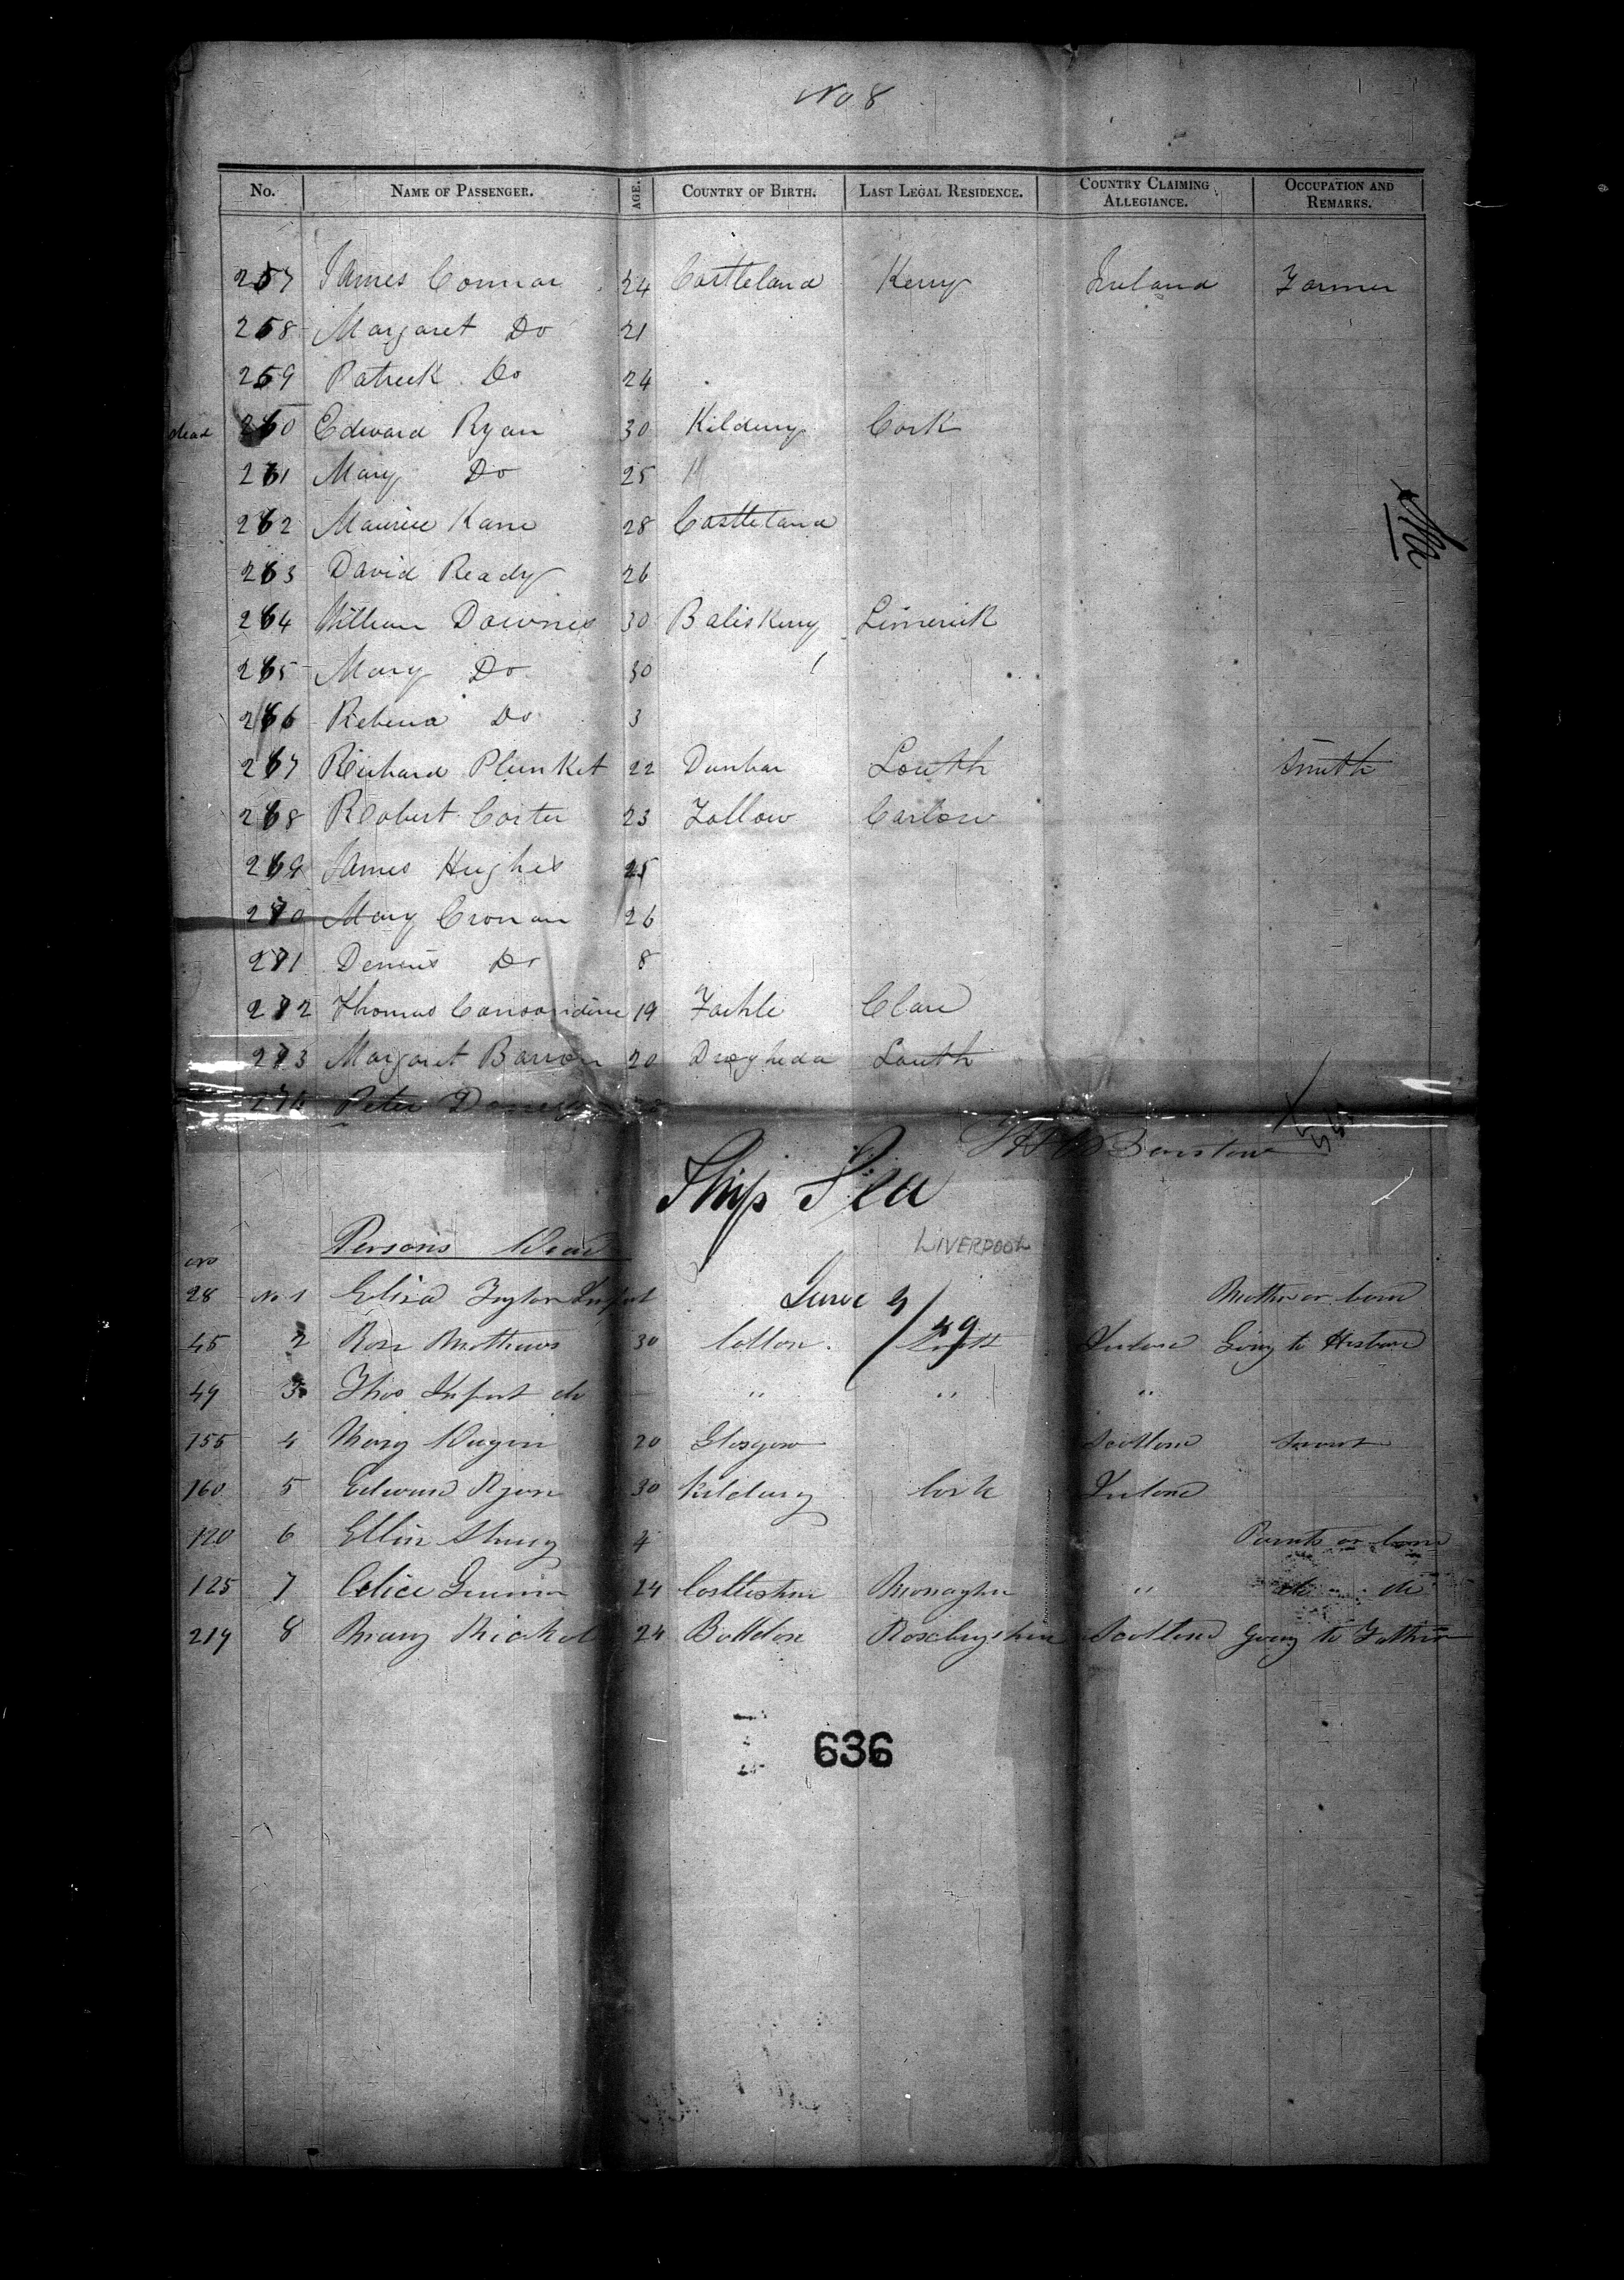 No 8
No. NAME OF PASSENGER. AGE. COUNTRY OF BIRTH. LAST LEGAL RESIDENCE. COUNTRY CLAIMING ALLEGIANCE. OCCUPATION AND REMARKS.
257 James Connor 24 Castleland Kerry Ireland Farmer
258 Margaret Do 21
259 Patrick Do 24
dead 260 Edward Ryan 30 Kilderry Cork
261 Mary Do 25 "
262 Maurice Kane 28 Castleland
263 David Ready 26
264 William Downes 30 Baliskerry Limerick
265 Mary Do 30
266 Do 3
267 Richard Plunket 22 Dunbar Louth Smith
268 Robert Carter 23 Tollow Carlow
269 James Hughes 25
270 Mary Cronan 26
271 Dennis Do 8
272 Thomas Consandine 19 Clare
273 Margaret Barron 20 Drogheda Louth
274 Peter
Ship Sea
LIVERPOOL
Persons Dead
No
June 9/49
28 No 1 Eliza Infant Mother on board
45 2 Rose Mathews 30 Collon Louth Ireland Going to Husband
49 3 Thos Infant do " " "
155 4 Mary 20 Glasgow Scotland Servant
160 5 Edward Ryan 30 Kilderry Cork Ireland
120 6 Ellen 4 Parents on board
125 7 Alice 24 Monaghan " do do
219 8 Mary 24 Roxburgshire Scotland Going to Father
636